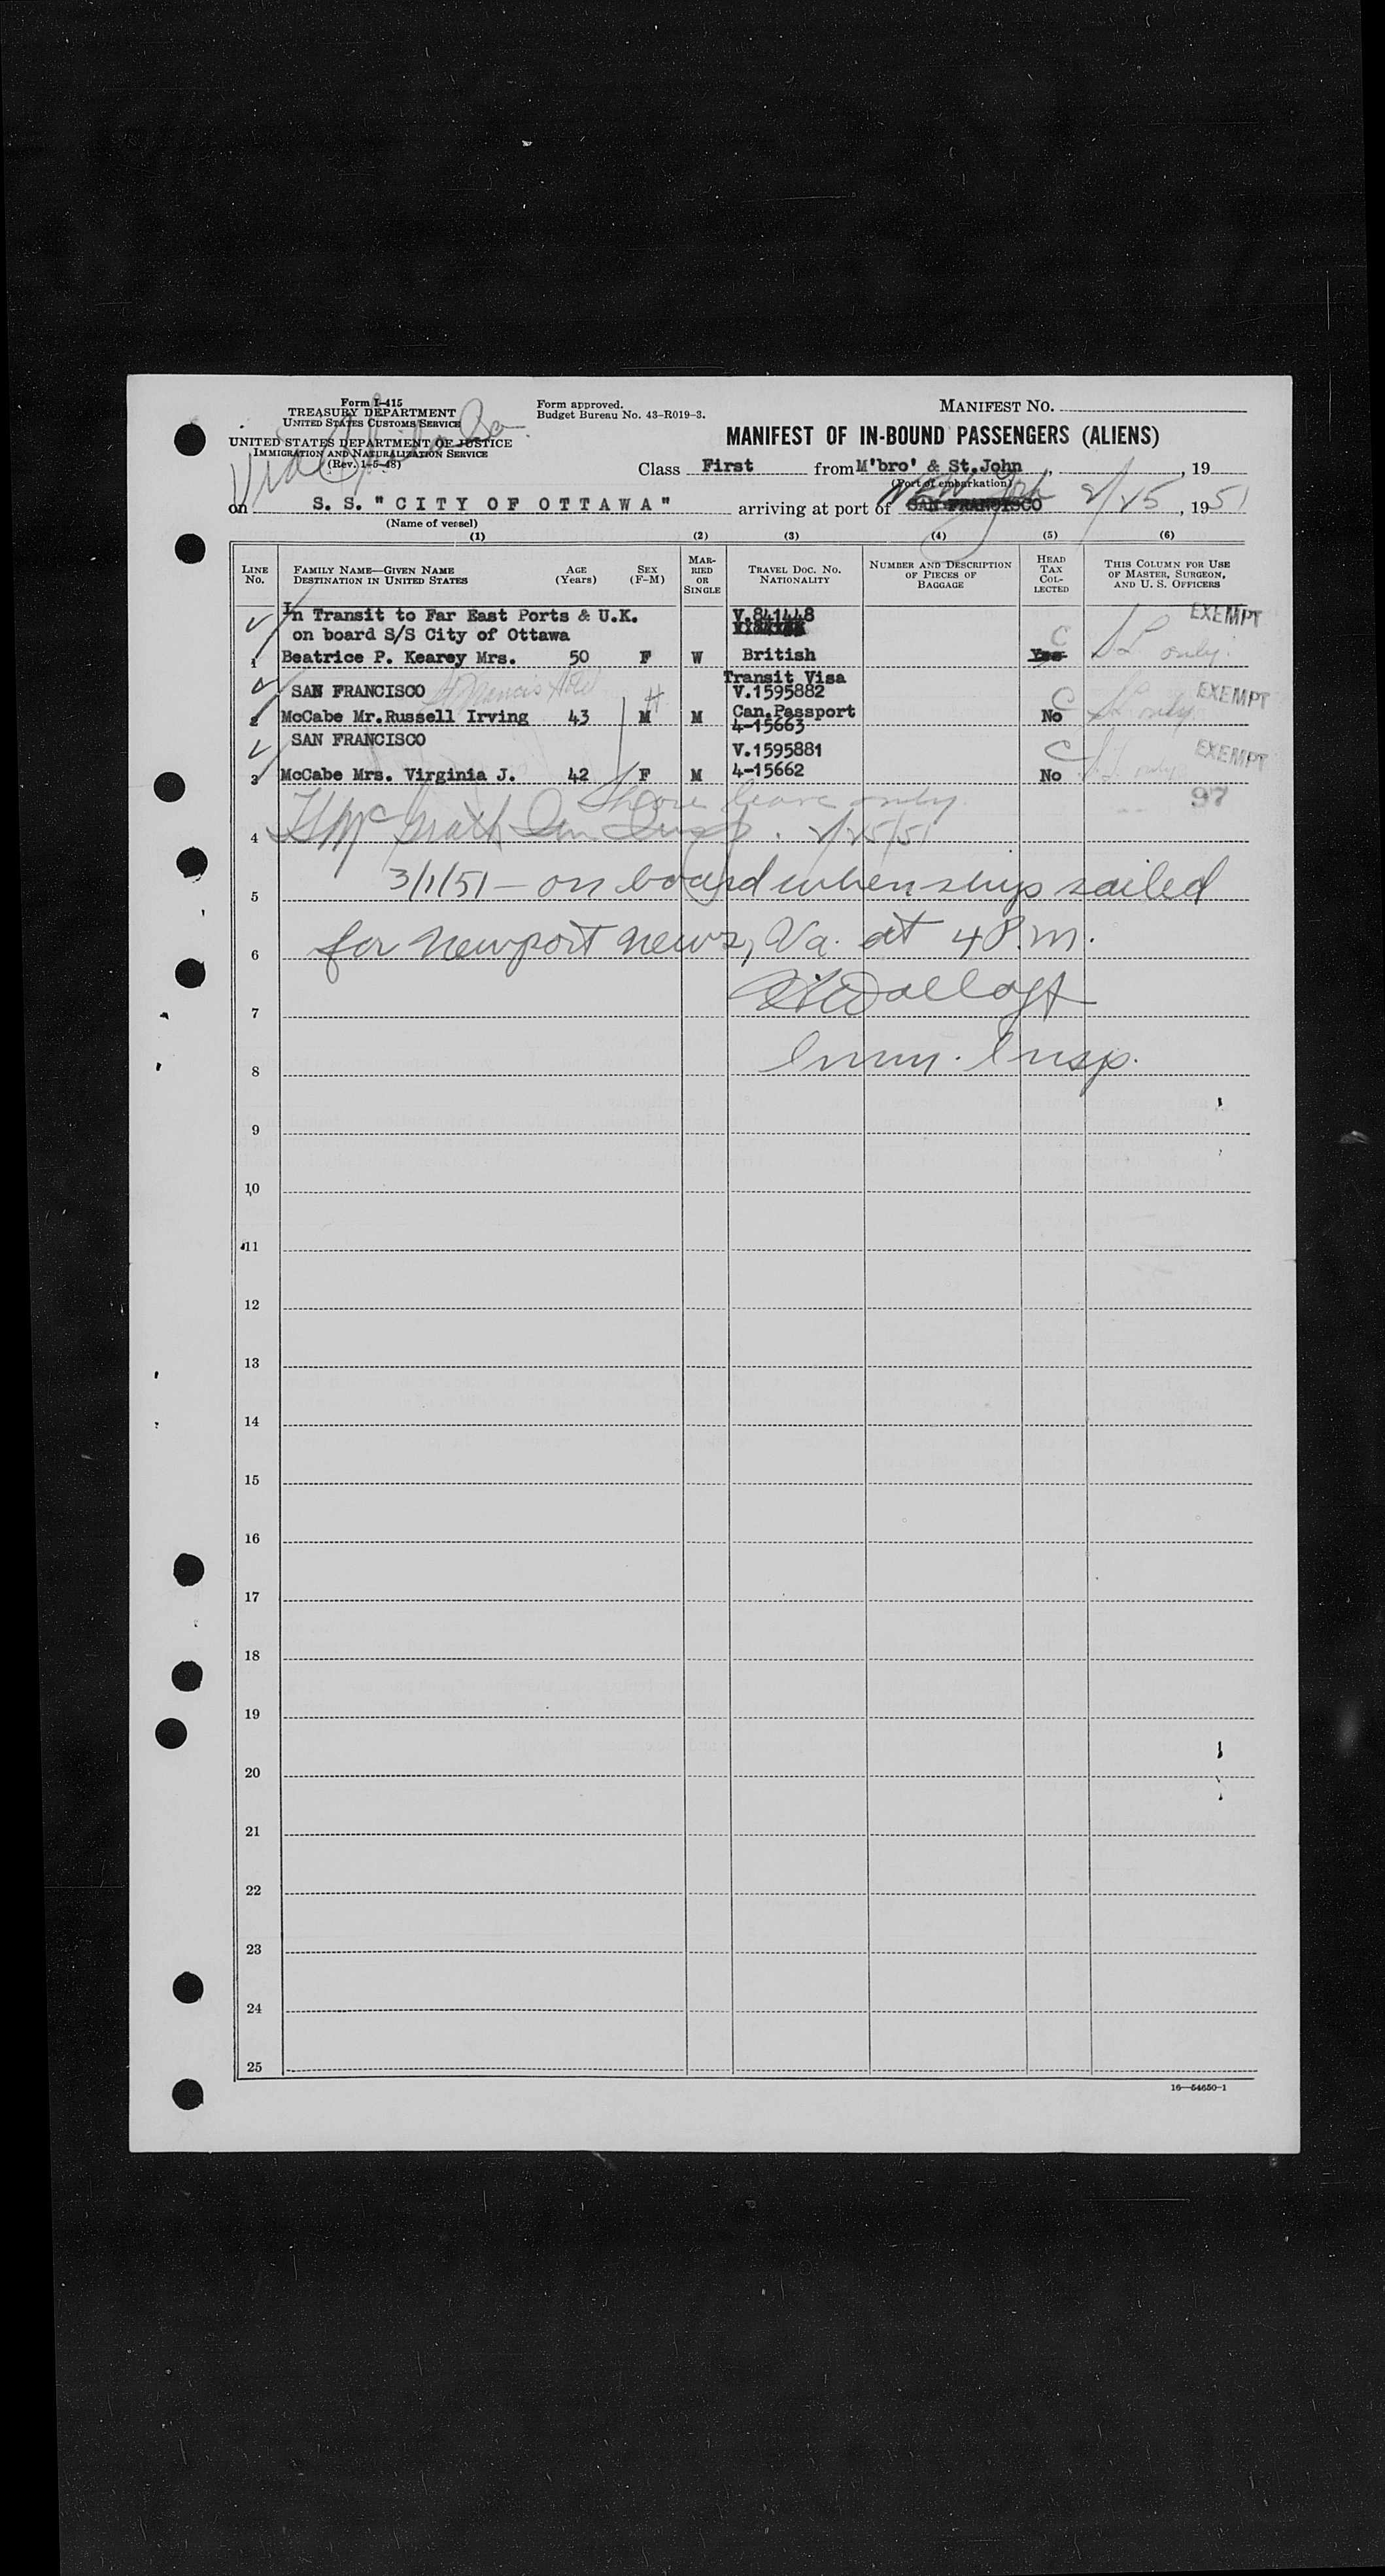 Form I-415
TREASURY DEPARTMENT
UNITED STATES CUSTOMS SERVICE
UNITED STATES DEPARTMENT OF JUSTICE
IMMIGRATION AND NATURALIZATION SERVICE
(Rev. 1-5-48)
Via
Form approved.
Budget Bureau No. 43-R019-3.
MANIFEST NO.
MANIFEST OF IN-BOUND PASSENGERS (ALIENS)
Class First from M'bro' & St.John , , 19
(Port of embarkation)
on S. S. " CITY OF OTTAWA " arriving at port of SAN FRANCISCO New York 2/25, 1951
(Name of vessel)
(1) (2) (3) (4) (5) (6)
LINE NO.
FAMILY NAME—GIVEN NAME
DESTINATION IN UNITED STATES
AGE (Years)
SEX (F-M)
MARRIED OR SINGLE
TRAVEL DOC. NO. NATIONALITY
NUMBER AND DESCRIPTION OF PIECES OF BAGGAGE
HEAD TAX COLLECTED
THIS COLUMN FOR USE OF MASTER, SURGEON, AND U. S. OFFICERS
In Transit to Far East Ports & U.K. V.841448 EXEMPT
on board S/S City of Ottawa C SL only.
1 Beatrice P. Kearey Mrs. 50 F W British Yes
Transit Visa
SAN FRANCISCO V.1595882 C EXEMPT
2 McCabe Mr.Russell Irving 43 M M Can.Passport No SL only
4-15663
SAN FRANCISCO V.1595881 C EXEMPT
3 McCabe Mrs. Virginia J. 42 F M 4-15662 No
Shore leave only 97
4 McGrath Imm Insp. 2/25/51
5 3/1/51 — on board when ships sailed
6 for Newport News, Va. at 4 P.m.
7
8 Imm. Insp.
9
10
11
12
13
14
15
16
17
18
19
20
21
22
23
24
25
16—54650-1